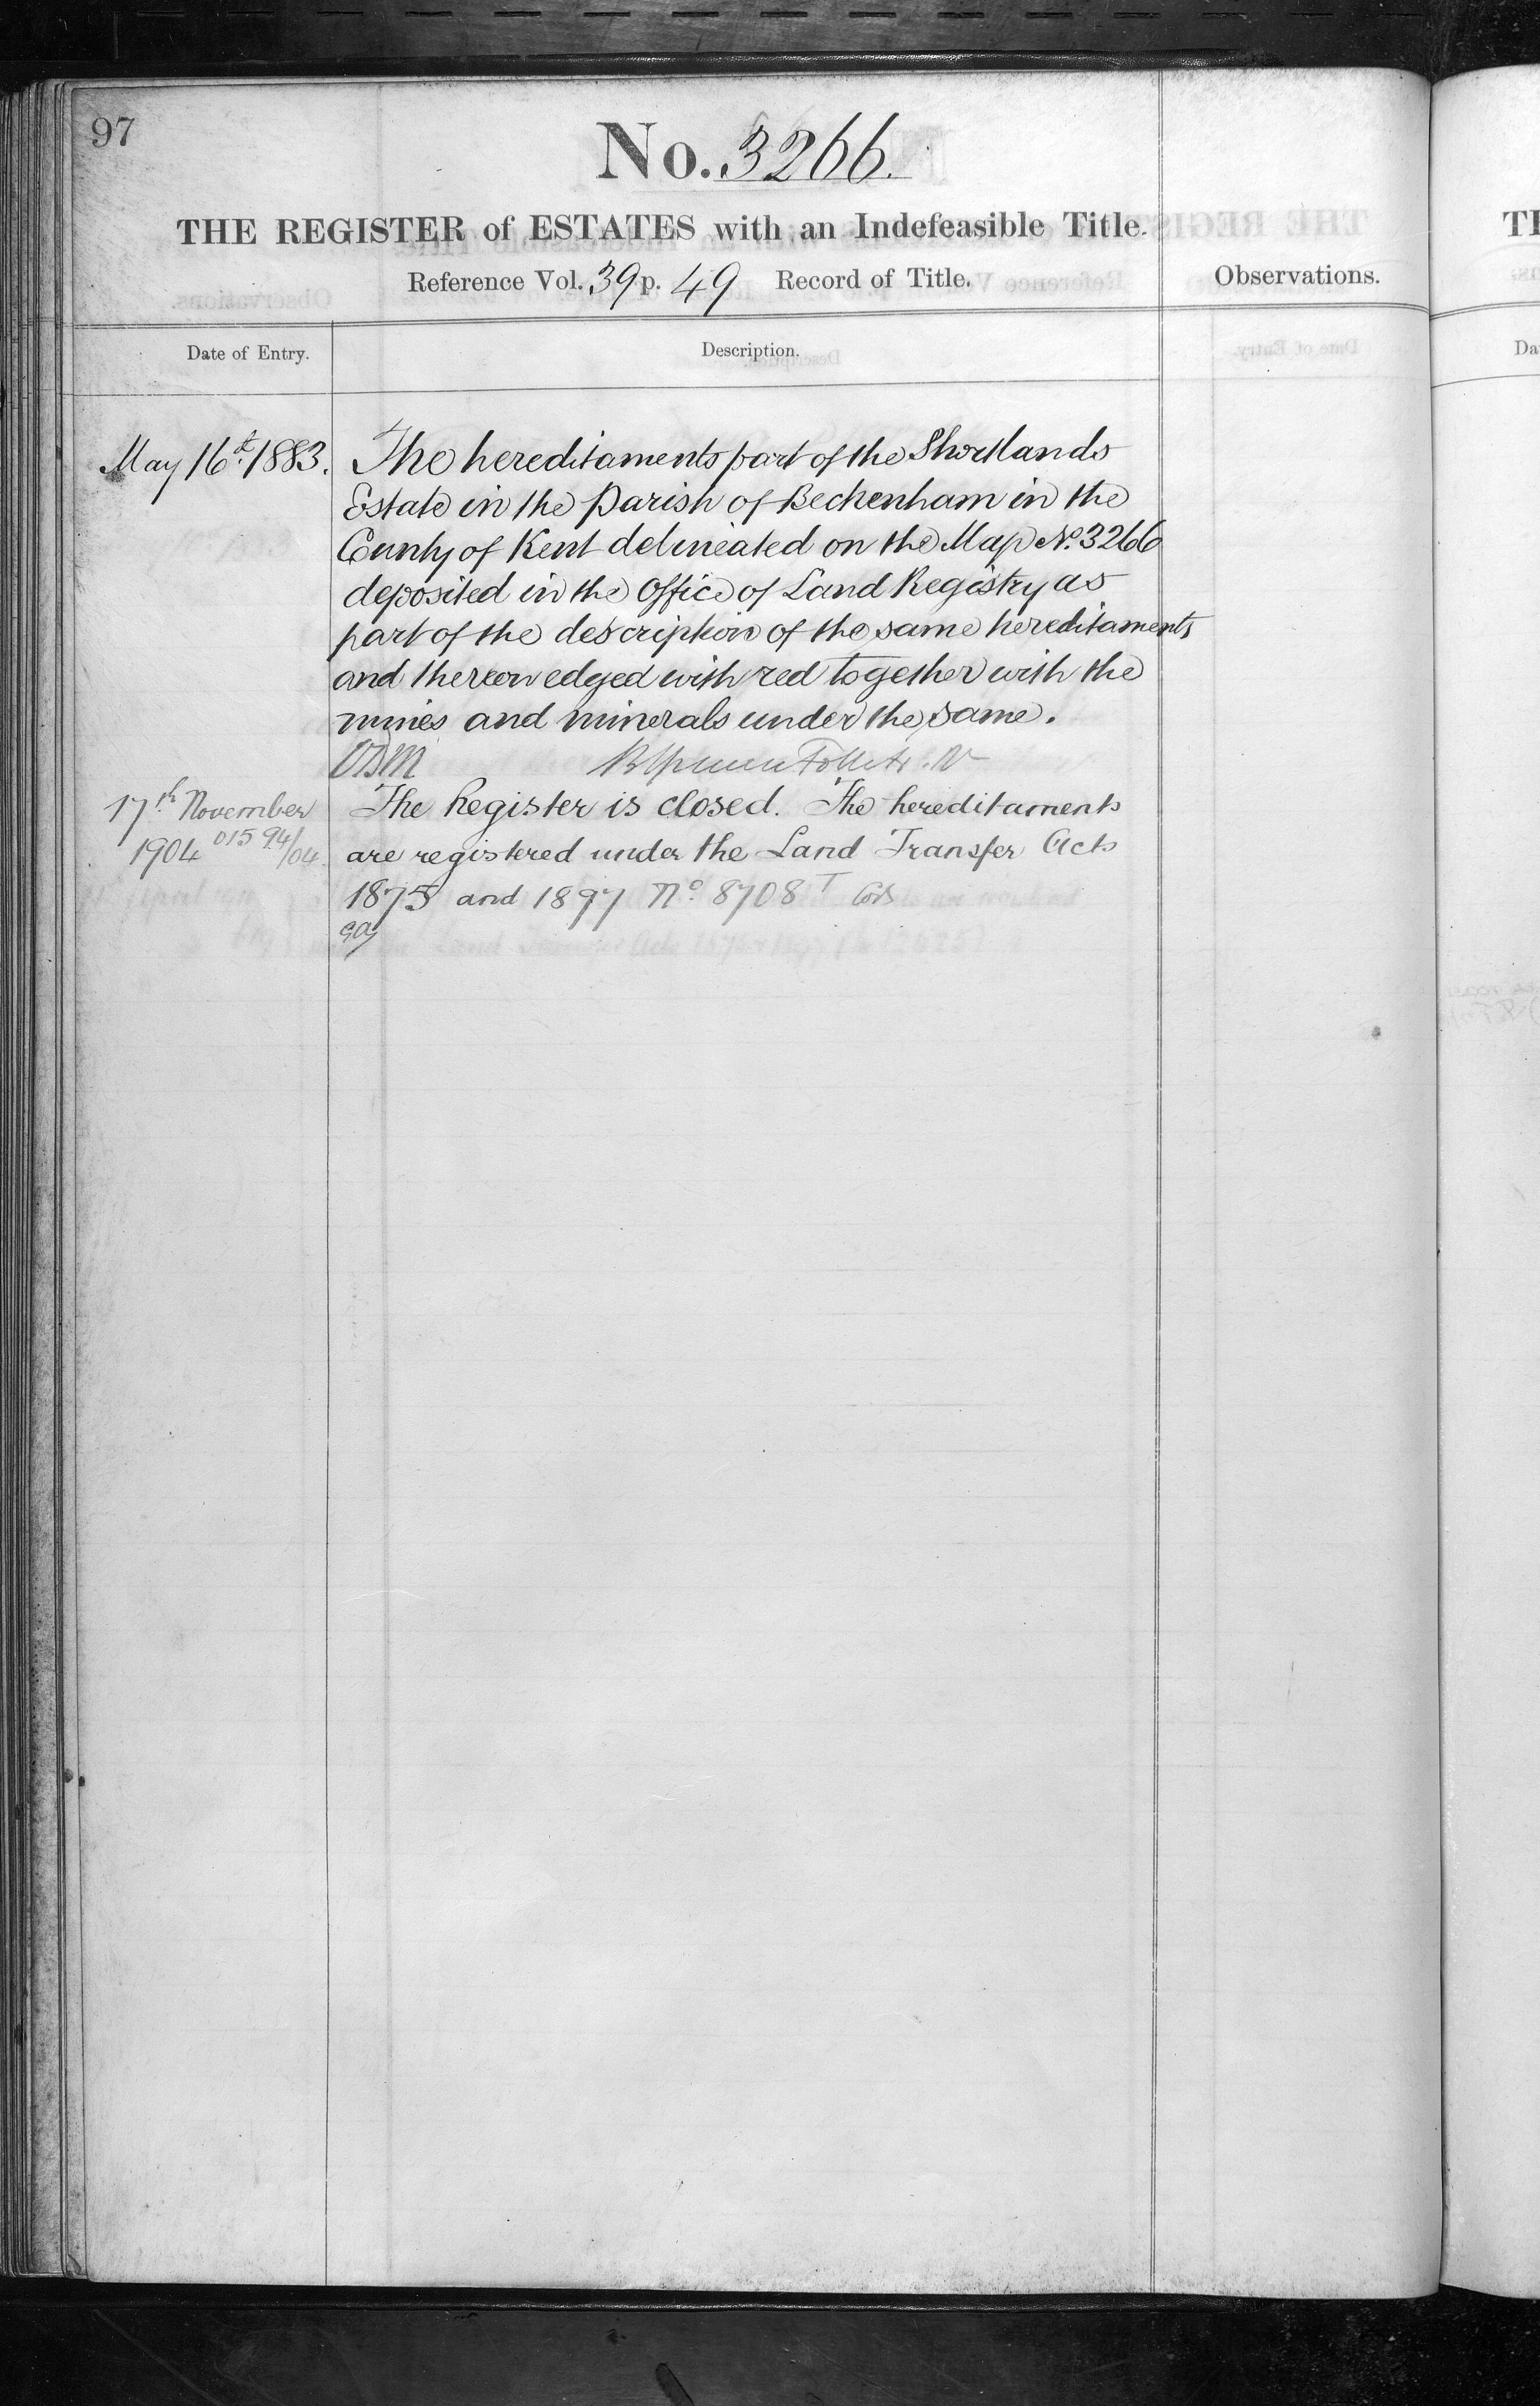 97
No. 3266.
THE REGISTER of ESTATES with an Indefeasible Title.
Reference Vol. 39 p. 49 Record of Title.
Observations.
Date of Entry.
Description.
May 16th 1883.
The hereditaments part of the Shortlands
Estate in the Parish of Beckenham in the
County of Kent delineated on the Map No. 3266
deposited in the Office of Land Registry as
part of the description of the same hereditaments
and thereon edged with red together with the
mines and minerals under the same.
17th November
1904 01594/04
The Register is closed. The hereditaments
are registered under the Land Transfer Acts
1875 and 1897 No. 8708